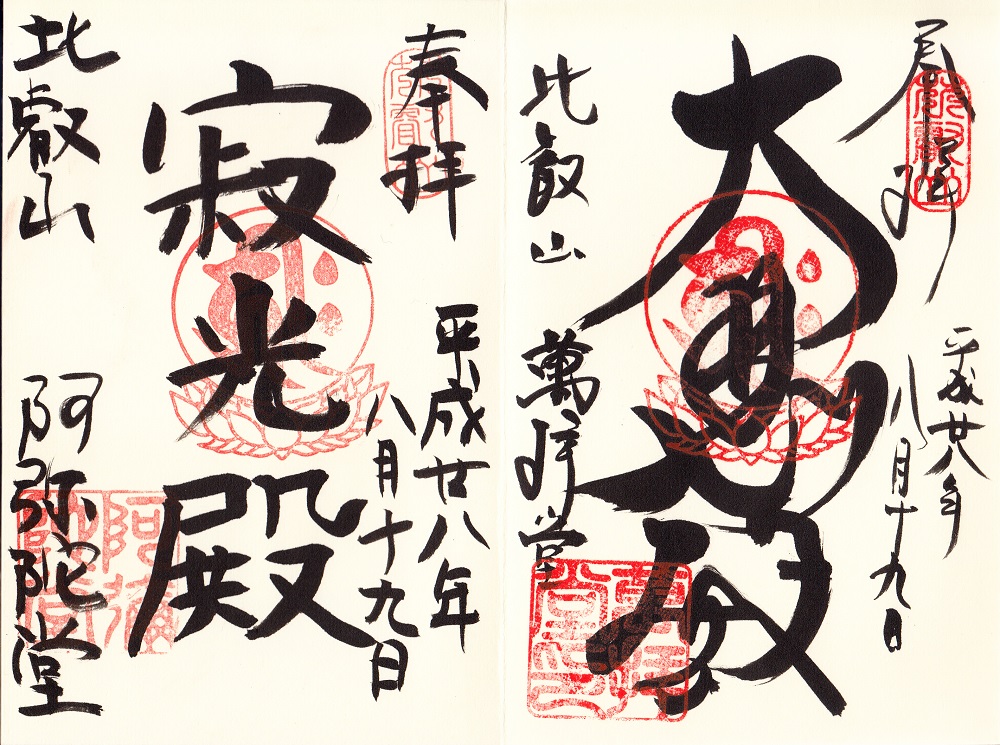 奉拝
平成廿八年
八月十九日
大恵殿
比叡山
萬拝堂
奉拝
平成廿八年
八月十九日
寂光殿
比叡山
阿弥陀堂